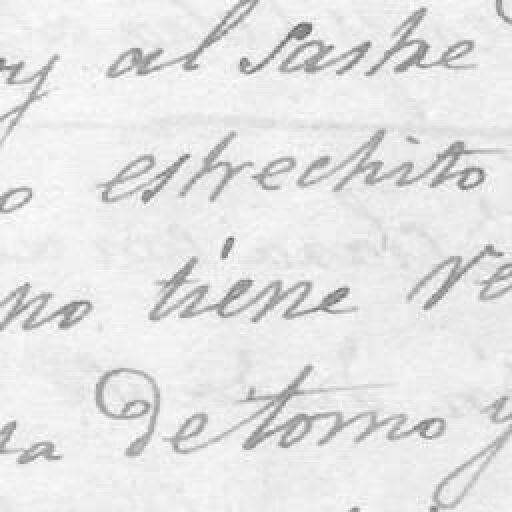 y al Sastre
o estrechito
no tiene re
sa de tomo y